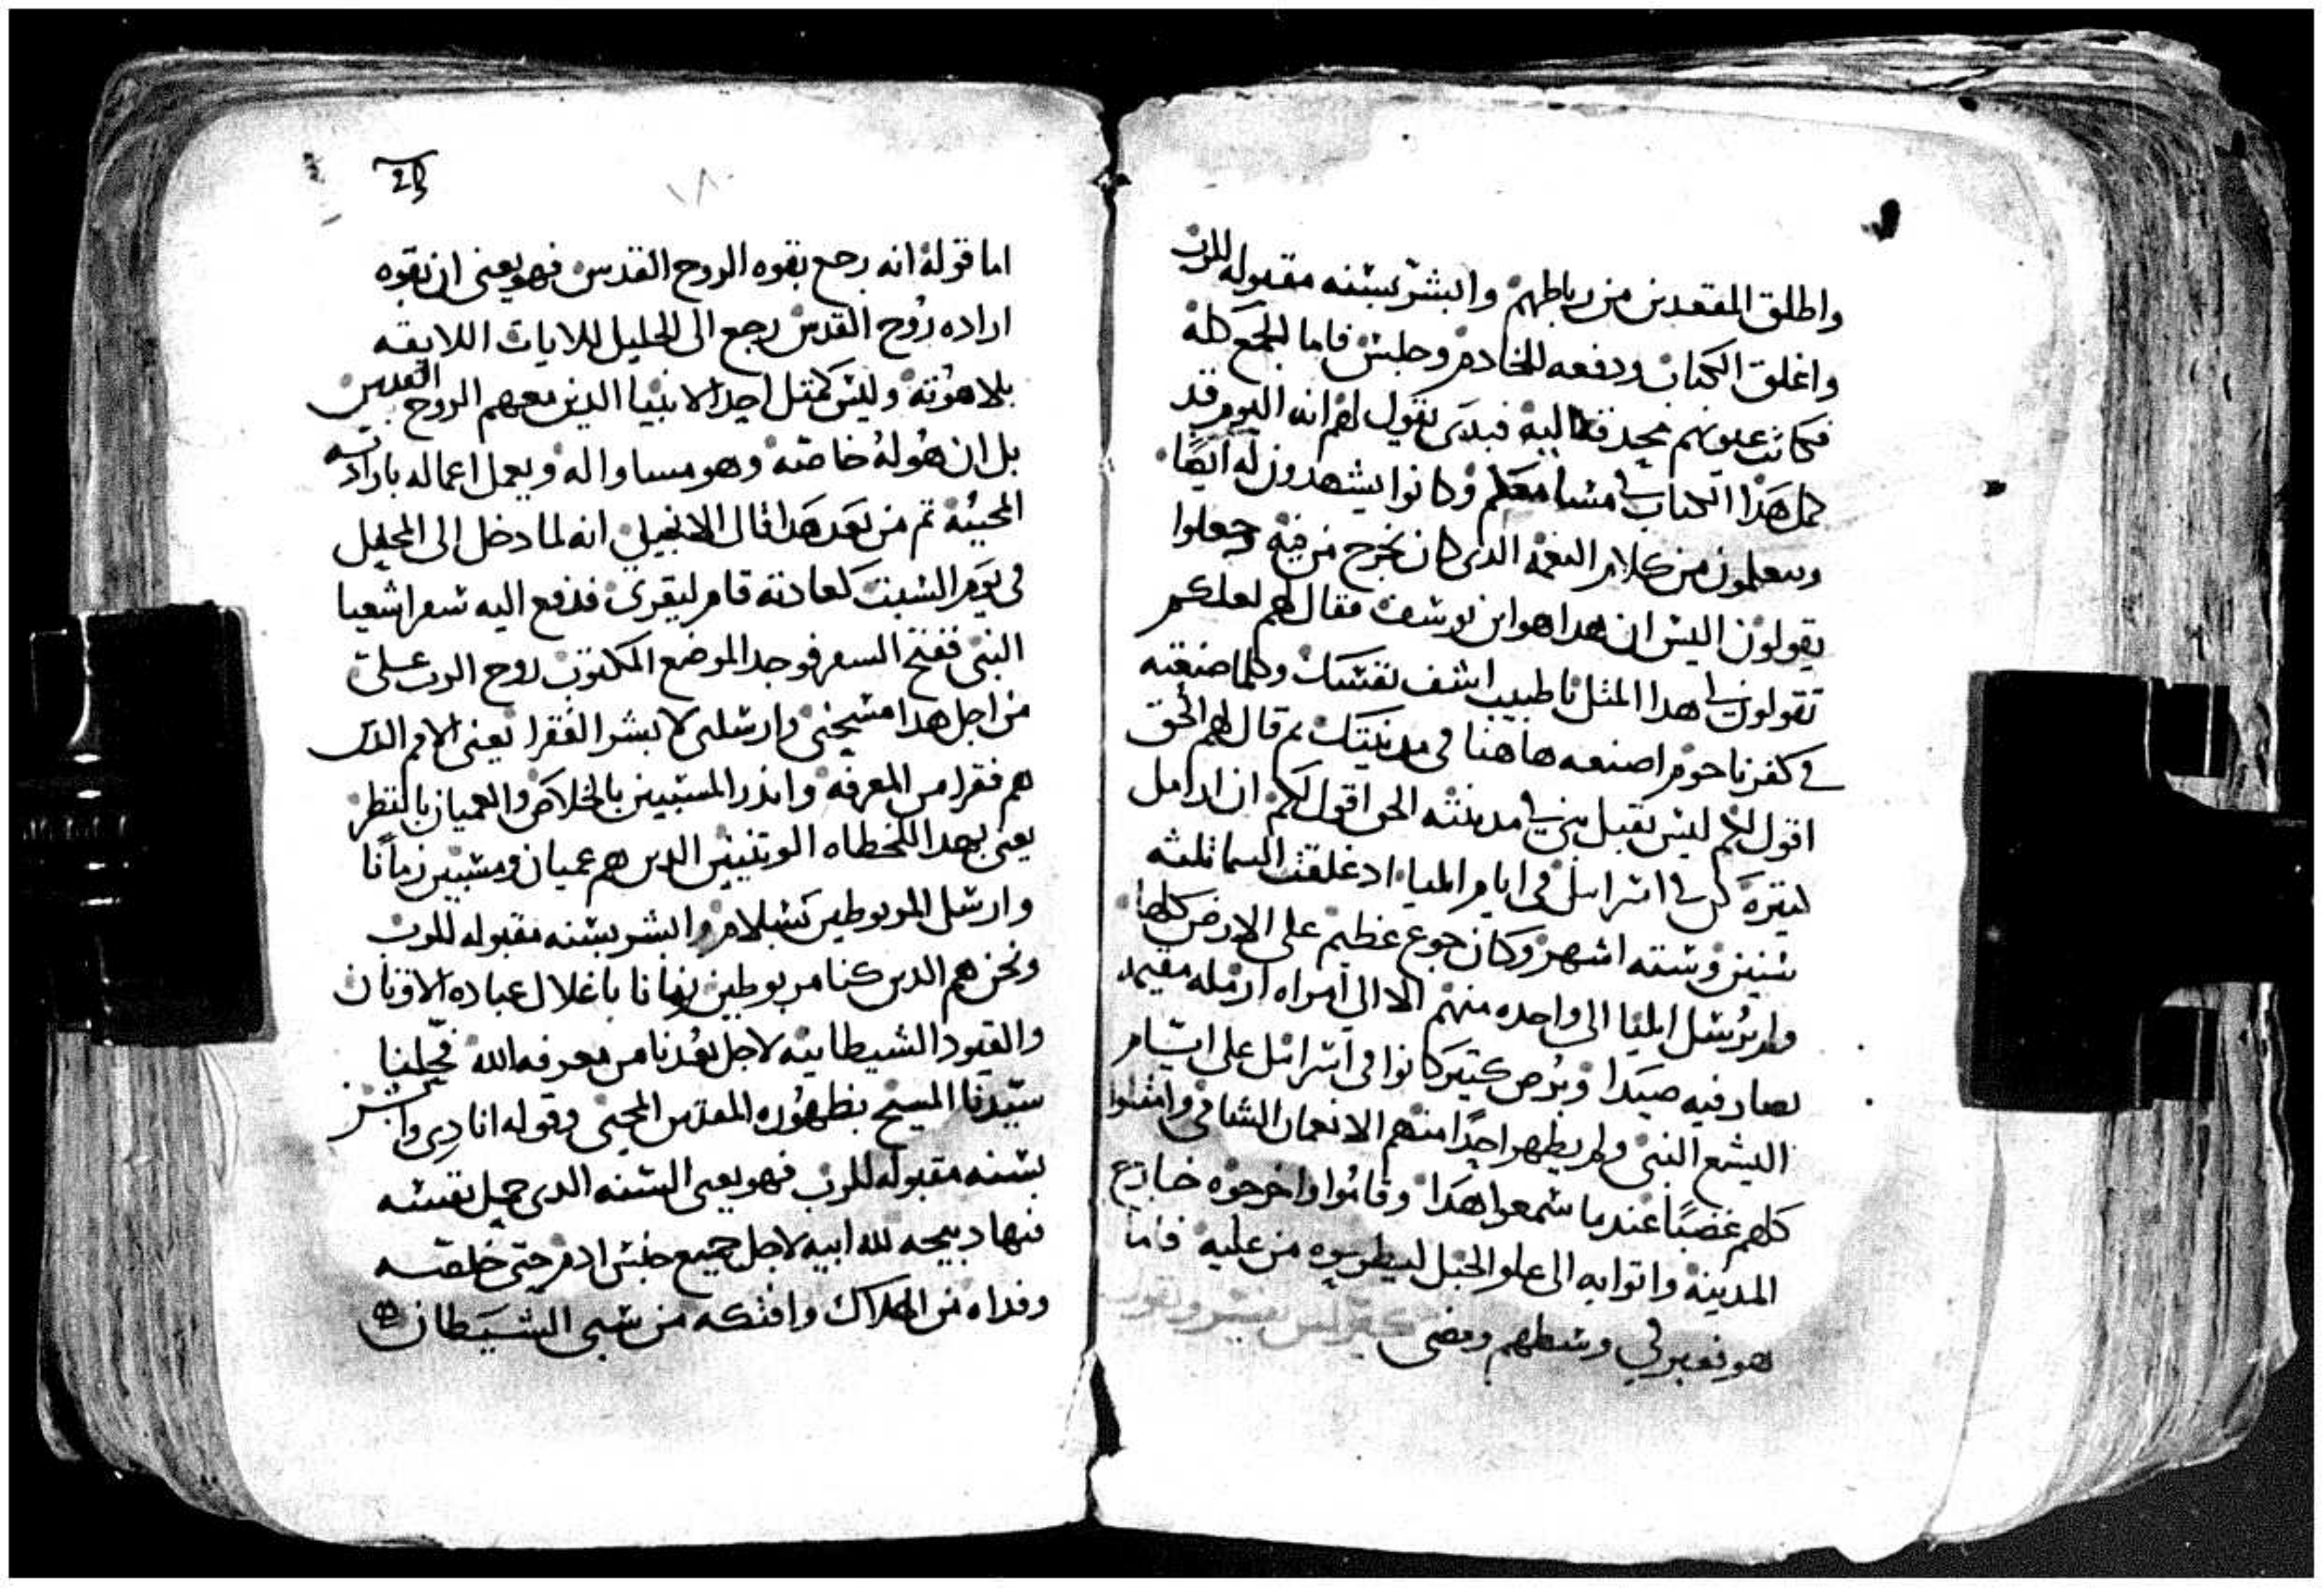 واطلق المقعدين من رباطهم وابشر بسنه مقبوله للرب
واغلق الكتاب ودفعه للخادم وجلس فاما الجمع كله
فكانت عيونهم محدقة اليه فبدى يقول لهم انه اليوم قد
كمل هذا الكتاب في مسامعكم وكانوا يشهدون له ايضا
ويتعلمون من كلام النعمه الدى كان يخرج من فيه وجعلوا
يقولون اليس ان هدا هو ابن يوسف فقال لهم لعلكم
تقولون لي هدا المثل يا طبيب اشف نفسك وكلما صنعته
في كفرناحوم اصنعه هاهنا في مدينتك تم قال لهم الحق
اقول لكم ليس يقبل نبي في مدينته الحق اقول لكم ان ارامل
كتيره كن في اسراييل في ايام ايليا اد غلقت السما تلته
سنين وسته اشهر وكان جوع عظيم على الارض كلها
ولم يرسل ايليا الى واحده منهم الا الى امراه ارمله مقيمه
بصارفيه صيدا وبرص كتير كانوا في اسراييل على ايام
اليشع النبى ولم يطهر احدا منهم الا نعمان الشامي وامتلوا
كلهم غضبا عندما سمعوا هدا وقاموا واخرجوه خارج
المدينه واتوا به الى علو الجبل ليطرحوه من عليه فاما
هو فعبر في وسطهم ومضى
٢٩
١٨٠
اما قوله انه رجع بقوه الروح القدس فهو يعنى ان بقوه
اراده روح القدس رجع الى الجليل للايات اللايقه
بلاهوته وليس كمتل احد الانبيا الدين معهم الروح القدس
بل ان هو له خاصه وهو مساوا له ويعمل اعماله بارادته
المحييه تم من بعد هدا قال الانجيلي انه لما دخل الى المجمع
في يوم السبت كعادته قام ليقرى فدفع اليه سفر اشعيا
النبى ففتح السفر فوجد الموضع المكتوب روح الرب على
من اجل هدا مسحنى وارسلنى لابشر الفقرا يعنى الامم الدين
هم فقرا من المعرفه واندر المسبيين بالخلاص والعميان بالنظر
يعنى بهدا الخطاه الوتنيين الدين هم عميان ومسبيين زمانا
وارسل المربوطين بسلام وابشر بسنه مقبوله للرب
ونحن هم الدين كنا مربوطين زمانا باغلال عباده الاوتان
والقيود الشيطانيه لاجل بعدنا من معرفه الله فحلنا
سيدنا المسيح بظهوره المقدس المحيى وقوله انادى وابشر
بسنه مقبوله للرب فهو يعنى السنه الدى جعل نفسه
فيها دبيحه لله ابيه لاجل جميع جنس ادم حتى خلصه
وفداه من الهلاك وافتكه من سبى الشيطان